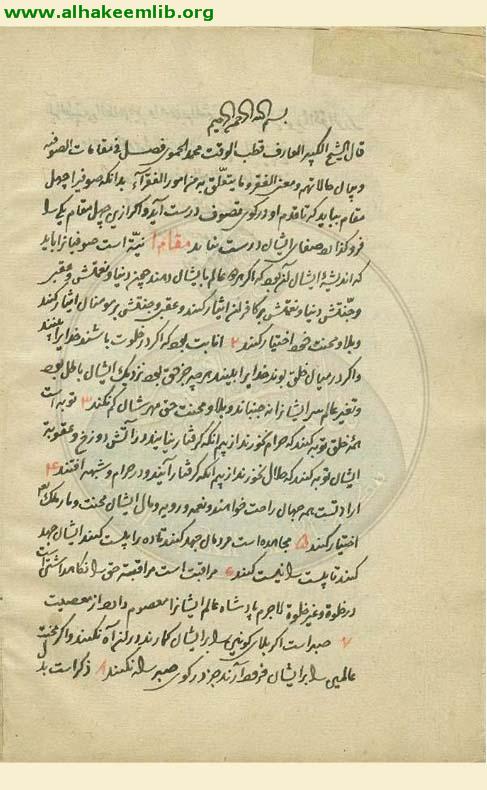 www.alhakeemlib.org
بسم الله الرحمن الرحیم
قال الشیخ الکبیر العارف قطب الوقت محمد الحموی فصل فی مقامات الصوفیه
وبیان حالاتهم ومعنی الفقر وما یتعلّق به من امور الفقرآء بدانکه صوفیرا چهل
مقام بباید کرد تا قدم او در کوی تصوف درست آید و اکر ازین چهل مقام یکی را
فروکذارد صفای ایشان درست نیاید مقام ۱ نیّة است صوفیانرا باید
که اندیشۀ ایشان آن بود که اکر هر دو عالم بایشان دهند جز دنیا و نعمتش و عقبی
و جنّتش دنیا و نعمتش بر کافران ایثار کنند و عقبی و جنتش بر مومنان ایثار کنند
و بلا و محنت خود اختیار کنند ۲ انابت بود که اکر در خلوت باشند خدایرا بینند
و اکر در میان خلق بوند خدایرا بینند هرچه جز حق بود نزدیک ایشان باطل بود
و تغیر عالم سر ایشانرا نه جنباند و بلا و محنت حق مهر شان کم نکند ۳ توبه است
همه خلق توبه کنند که حرام نخورند از بیم آنکه کرفتار نیایند در آتش دوزخ و عقوبة
ایشان توبه کنند که حلال نخورند از بیم آنکه کرفتار آیند و در حرام و شبهه افتند ۴
ارادتست همه جهان راحت خواهند و نعمه و رو به و مال ایشان محنت و مار ملک
اختیار کنند ۵ مجاهده است مردمان جهد کنند تا ده را بیست کنند ایشان جهد
کنند تا بیست را نیست کنند ۶ مراقبت است مراقبة حق را نکاه داشتن است
در خلوة و غیر خلوة لاجرم پادشاه عالم ایشانرا معصوم دارد از معصیت
۷ صبر است اکر بلای کونین را بر ایشان کمارند در ان آه نکنند و اکر محنت
عالمین را بر ایشان فروآرند جز در کوی صبر راه نکنند ۸ ذکر است بدل